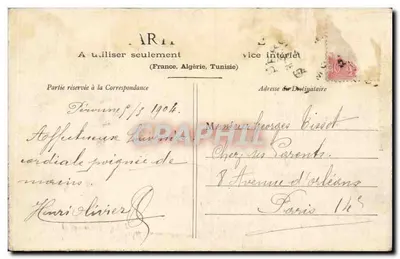 ART
A utiliser seulement vice intérie
(France, Algérie, Tunisie)
Partie réservée à la Correspondance
Adresse du Destinataire
Péronne 5/8 1904.
Affectueux
cordiale poignée de
mains
Henri Olivier
Monsieur Georges Tissot
Chez ses Parents
8 Avenue d'orléans
Paris 14e
CPHRC